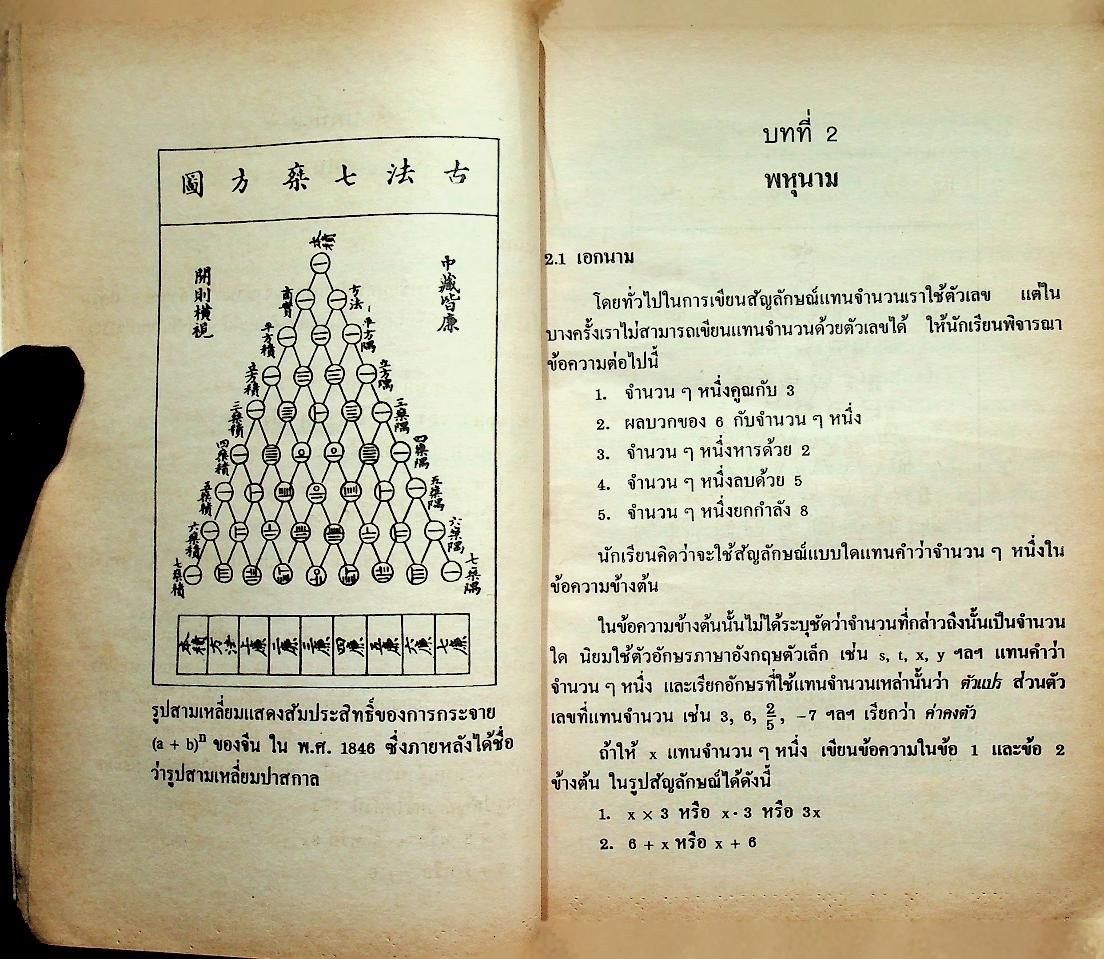 圖方蔾七法古
本積
商實
方法
平方積
平方隅
立方積
立方隅
三蔾積
三蔾隅
四蔾積
四蔾隅
五蔾積
五蔾隅
六蔾積
六蔾隅
七蔾積
七蔾隅
中藏皆廉
開則橫視
รูปสามเหลี่ยมแสดงสัมประสิทธิ์ของการกระจาย
(a + b)ⁿ ของจีน ใน พ.ศ. 1846 ซึ่งภายหลังได้ชื่อ
ว่ารูปสามเหลี่ยมปาสกาล
บทที่ 2
พหุนาม
2.1 เอกนาม
โดยทั่วไปในการเขียนสัญลักษณ์แทนจำนวนเราใช้ตัวเลข แต่ใน
บางครั้งเราไม่สามารถเขียนแทนจำนวนด้วยตัวเลขได้ ให้นักเรียนพิจารณา
ข้อความต่อไปนี้
1. จำนวน ๆ หนึ่งคูณกับ 3
2. ผลบวกของ 6 กับจำนวน ๆ หนึ่ง
3. จำนวน ๆ หนึ่งหารด้วย 2
4. จำนวน ๆ หนึ่งลบด้วย 5
5. จำนวน ๆ หนึ่งยกกำลัง 8
นักเรียนคิดว่าจะใช้สัญลักษณ์แบบใดแทนคำว่าจำนวน ๆ หนึ่งใน
ข้อความข้างต้น
ในข้อความข้างต้นนั้นไม่ได้ระบุชัดว่าจำนวนที่กล่าวถึงนั้นเป็นจำนวน
ใด นิยมใช้ตัวอักษรภาษาอังกฤษตัวเล็ก เช่น s, t, x, y ฯลฯ แทนคำว่า
จำนวน ๆ หนึ่ง และเรียกอักษรที่ใช้แทนจำนวนเหล่านั้นว่า ตัวแปร ส่วนตัว
เลขที่แทนจำนวน เช่น 3, 6, 2/5, −7 ฯลฯ เรียกว่า ค่าคงตัว
ถ้าให้ x แทนจำนวน ๆ หนึ่ง เขียนข้อความในข้อ 1 และข้อ 2
ข้างต้น ในรูปสัญลักษณ์ได้ดังนี้
1. x × 3 หรือ x · 3 หรือ 3x
2. 6 + x หรือ x + 6